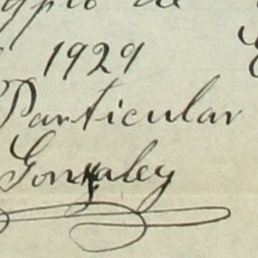 de
1929
Particular
Gonzaley